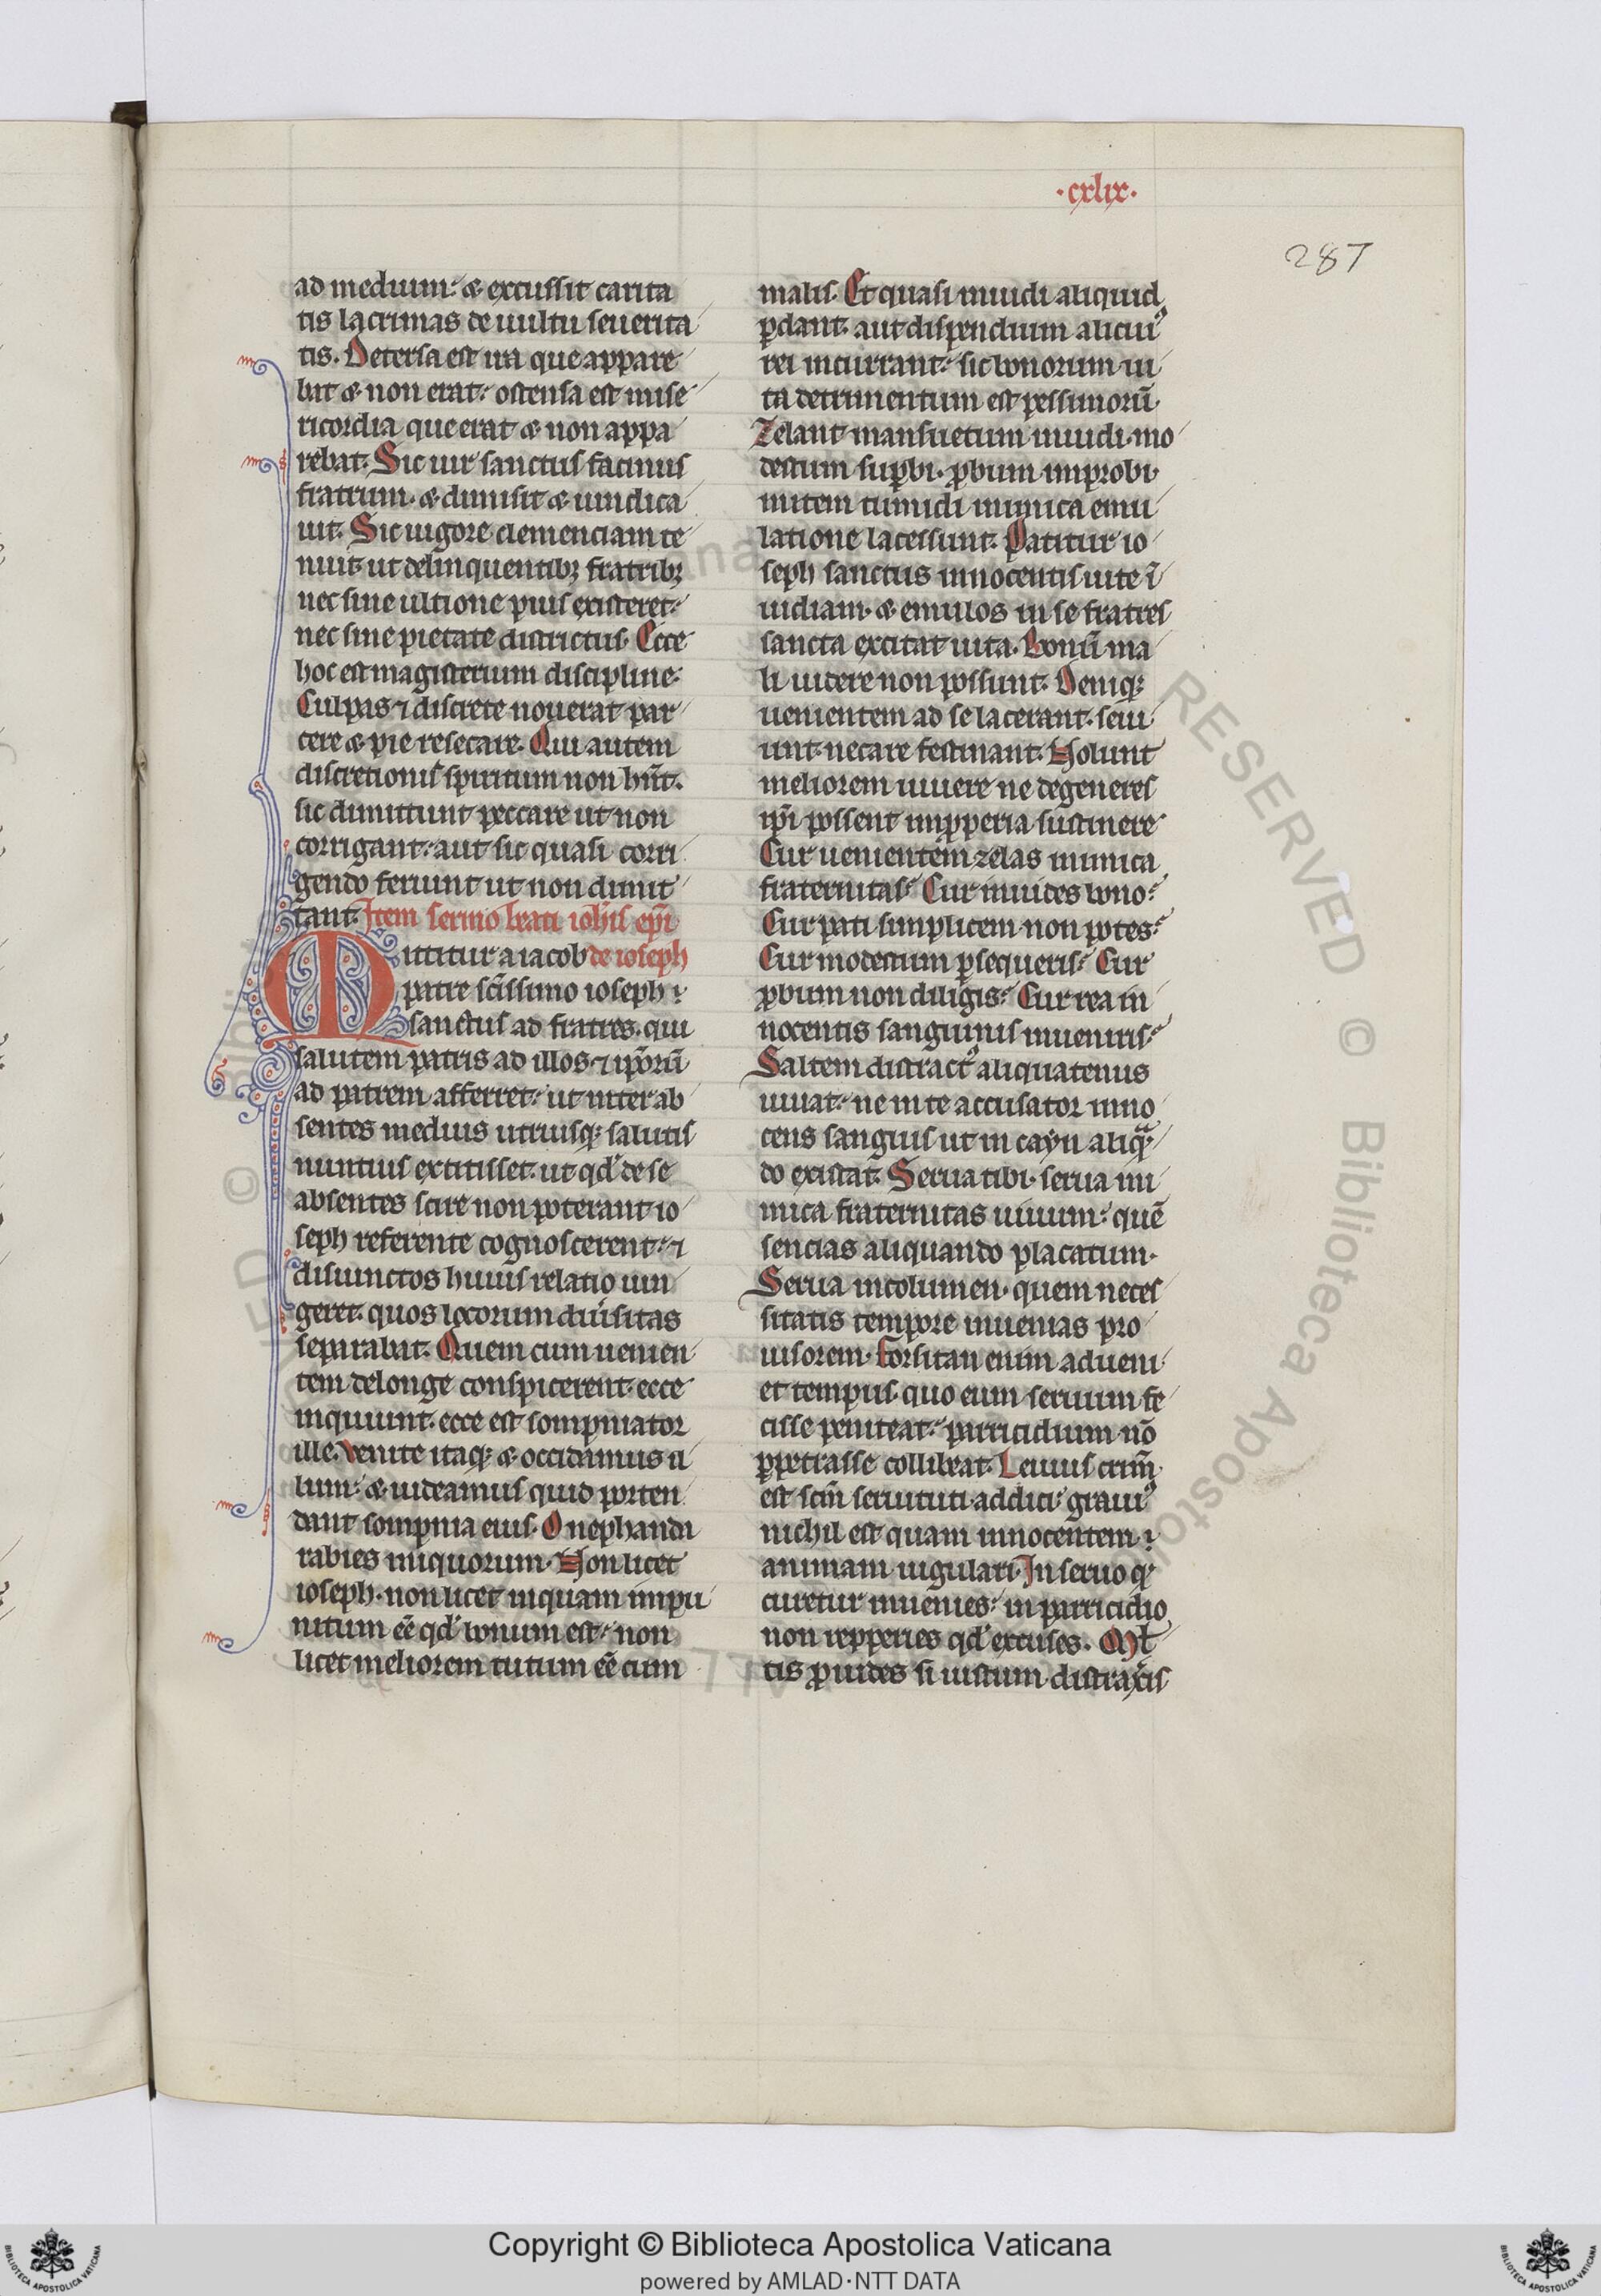 ·cxlix·
287
ad medium: & excussit carita
tis lacrimas de uultu seuerita
tis. Detersa est ira que appare
bat & non erat: ostensa est mise
ricordia que erat & non appa
rebat. Sic uir sanctus facinus
fratrum· & dimisit & uindica
uit. Sic uigore clemenciam te
nuit ut delinquentibꝫ fratribꝫ
nec sine ultione pius existeret:
nec sine pietate districtus· Ecce
hoc est magisterium discipline·
Culpas ⁊ discrete nouerat par
cere & pie resecare. Qui autem
discretionis spiritum non hñt.
sic dimittunt peccare ut non
corrigant: aut sic quasi corri
gendo feriunt ut non dimit
tant. Item sermo beati ioh̄is ep̄i
Mittitur a iacob de ioseph
patre sc̄issimo ioseph
sanctus ad fratres. qui
salutem patris ad illos· ⁊ ip̄orū
ad patrem afferret: ut inter ab
sentes medius utriusqꝫ salutis
nuntius extitisset. ut qd̓ de se
absentes scire non poterant io
seph referente cognoscerent: ⁊
disiunctos huius relatio iun
geret. quos locorum diu̓sitas
separabat. Quem cum uenien
tem delonge conspicerent. ecce
inquiunt. ecce est sompniator
ille. Venite itaqꝫ & occidamus il
lum: & uideamus quid porten
dant sompnia eius· O nephanda
rabies iniquorum· Non licet
ioseph· non licet inquam impu
nitum eē qd̓ bonum est: non
licet meliorem tutum eē cum
malis· Et quasi inuidi aliquid
ꝑdant. aut dispendium alicuiꝰ
rei incurrant: sic bonorum ui
ta detrimentum est pessimorū·
Zelant mansuetum inuidi· mo
destum suꝑbi· ꝓbum improbi·
mitem tumidi inimica emu
latione lacessunt. Patitur io
seph sanctus innocentis uite ī
uidiam· & emulos in se fratres
sancta excitat uita. Bonū ma
li uidere non possunt. Deniqꝫ
uenientem ad se lacerant. seui
unt· necare festinant. Nolunt
meliorem uiuere ne degeneres
ip̄i possent imꝓperia sustinere·
Cur uenientem zelas inimica
fraternitas? Cur inuides bono?
Cur pati simplicem non potes?
Cur modestum ꝑsequeris? Cur
ꝓbum non diligis? Cur rea in
nocentis sanguinis inueniris?
Saltem distractꝰ aliquatenus
uiuat: ne in te accusator inno
cens sanguis ut in cayn aliqᷓ
do existat. Serua tibi· serua ini
mica fraternitas uiuum: quē
sencias aliquando placatum·
Serua incolumen· quem neces
sitatis tempore inuenias pro
uisorem· Forsitan enim adueni
et tempus· quo eum seruum fe
cisse peniteat: parricidium nō
ꝑpetrasse collibeat. Leuius crim̄
est scm̄ seruituti addici· grauiꝰ
nichil est quam innocentem
animam iugulari. In seruo qͦ
curetur inuenies: in parricidio
non repperies qd̓ excuses. Ml̄
tis ꝓuides si iustum distrax̓is
Copyright © Biblioteca Apostolica Vaticana
powered by AMLAD·NTT DATA